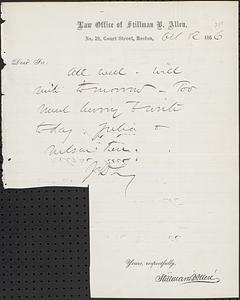 Law Office of Stillman B. Allen,
No. 20, Court Street, Boston, Oct 12 1866
Dear Sir:
All well - Will
write tomorrow - Too
much hurry to write
today. Julia &
Yours, respectfully,
Stillman B Allen